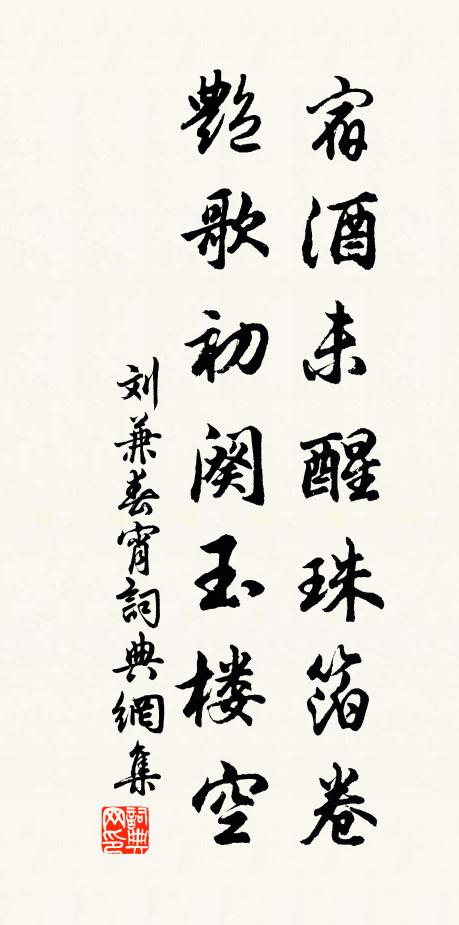 宿酒未醒珠箔卷
艳歌初阕玉楼空
刘兼春宵詞典網集
詞典网印